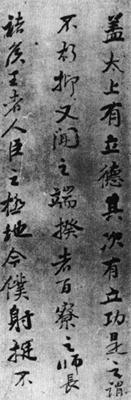 盖太上有立德其次有立功是之谓
不朽抑又闻之端揆者百寮之师长
诸侯王者人臣之极地今仆射挺不